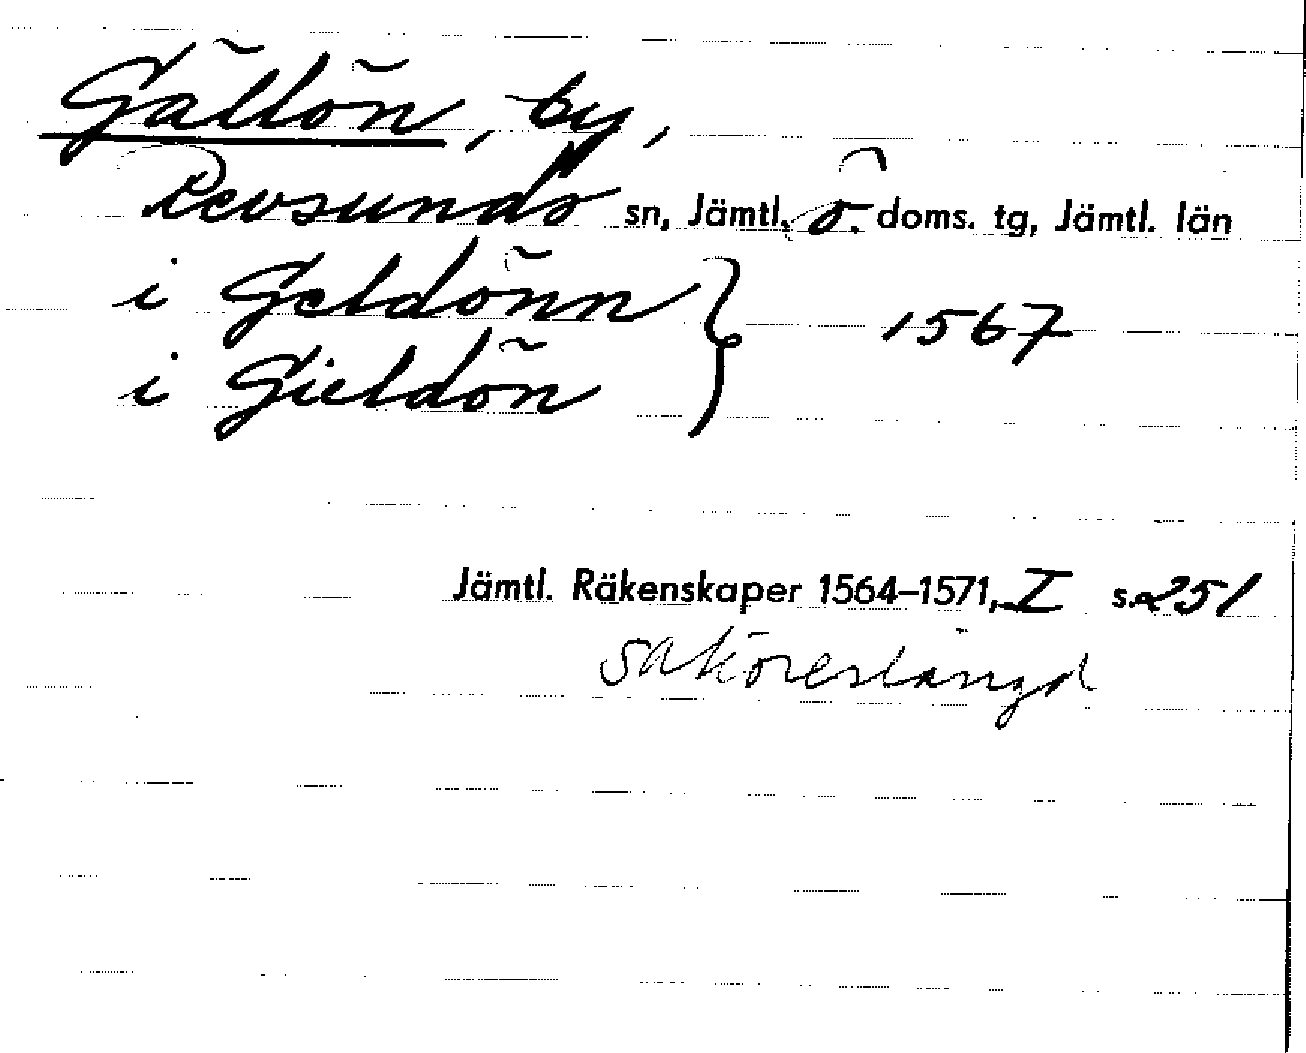 Gällön, by,
Revsunds sn, Jämtl. ö. doms. tg, Jämtl. län
i Geldönn
i Gieldön } 1567
Jämtl. Räkenskaper 1564–1571, I s. 251
saköreslängd